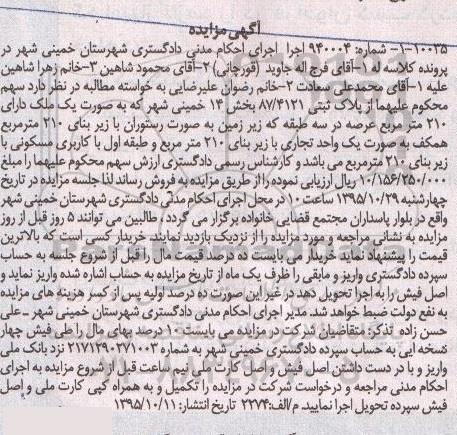 آگهی مزایده
۱۰۰۲۵-۱- شماره: ۹۴۰۰۰۴ اجرا اجرای احکام مدنی دادگستری شهرستان خمینی شهر در
پرونده کلاسه له ۱-آقای فرج اله جاوید (قورچانی) ۲-آقای محمود شاهین ۳-خانم زهرا شاهین
علیه ۱-آقای محمدعلی سعادت ۲-خانم رضوان علیرضایی به خواسته مطالبه در نظر دارد سهم
محکوم علیهما از پلاک ثبتی ۸۷/۴۱۲۱ بخش ۱۴ خمینی شهر که به صورت یک ملک دارای
۲۱۰ متر مربع عرصه در سه طبقه که زیر زمین به صورت رستوران با زیر بنای ۲۱۰ مترمربع
همکف به صورت یک واحد تجاری با زیر بنای ۲۱۰ متر مربع و طبقه اول با کاربری مسکونی با
زیر بنای ۲۱۰ مترمربع می باشد و کارشناس رسمی دادگستری ارزش سهم محکوم علیهما را مبلغ
۱۰/۱۵۶/۲۵۰/۰۰۰ ریال ارزیابی نموده را از طریق مزایده به فروش رساند لذا جلسه مزایده در تاریخ
چهارشنبه ۱۳۹۵/۱۰/۲۹ ساعت ۱۰ در محل اجرای احکام مدنی دادگستری شهرستان خمینی شهر
واقع در بلوار پاسداران مجتمع قضایی خانواده برگزار می گردد . طالبین می توانند ۵ روز قبل از روز
مزایده به نشانی مراجعه و مورد مزایده را از نزدیک بازدید نمایند خریدار کسی است که بالاترین
قیمت را پیشنهاد نماید خریدار می بایست ده درصد قیمت مال را قبل از شروع جلسه به حساب
سپرده دادگستری واریز و مابقی را ظرف یک ماه از تاریخ مزایده به حساب اشاره شده واریز نماید و
اصل فیش را به اجرا تحویل دهد در غیر این صورت ده درصد اولیه پس از کسر هزینه های مزایده
به نفع دولت ضبط خواهد شد. مدیر اجرای احکام مدنی دادگستری شهرستان خمینی شهر -علی
حسن زاده تذکر: متقاضیان شرکت در مزایده می بایست: ۱۰درصد بهای مال را طی فیش چهار
نسخه ایی به حساب سپرده دادگستری خمینی شهر به شماره ۲۱۷۱۳۹۰۲۷۱۰۰۳ نزد بانک ملی
واریز و با در دست داشتن اصل فیش و اصل کارت ملی نیم ساعت قبل از شروع مزایده به اجرای
احکام مدنی مراجعه و درخواست شرکت در مزایده را تکمیل و به همراه کپی کارت ملی و اصل
فیش سپرده تحویل اجرا نمایید. م/الف:۲۲۷۴ تاریخ انتشار: ۱۳۹۵/۱۰/۱۱